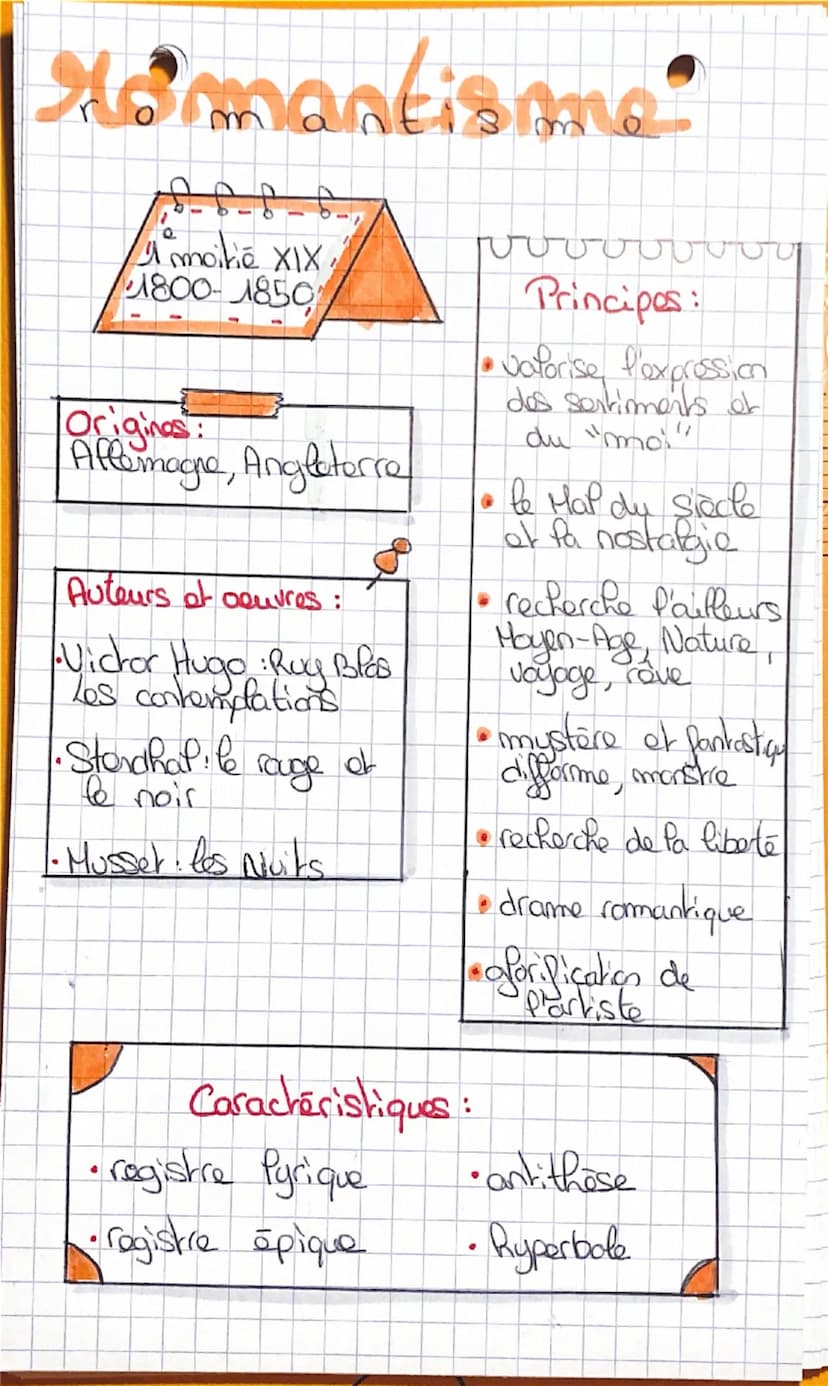 romantisme
romantisme
1e moitié XIX
1800-1850
Origines:
Allemagne, Angleterre
Auteurs et oeuvres :
•Victor Hugo : Ruy Blas
Les contemplations
•Stendhal : le rouge et
le noir
•Musset : les Nuits
Principes :
• valorise l'expression
des sentiments et
du "moi"
• le Mal du siècle
et la nostalgie
• recherche l'ailleurs
Moyen-Age, Nature,
voyage, rêve
• mystère et fantastique
difforme, monstre
• recherche de la liberté
• drame romantique
• glorification de
l'artiste
Caractéristiques :
• registre lyrique
• registre épique
• antithèse
• hyperbole